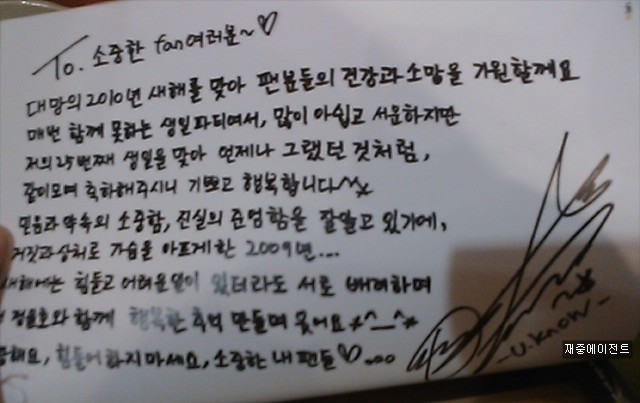 To. 소중한 fan여러분~♡
대망의 2010년 새해를 맞아 팬분들의 건강과 소망을 기원할께요
매번 함께 못하는 생일파티여서, 많이 아쉽고 서운하지만
저의 25번째 생일을 맞아 언제나 그랬던 것처럼,
같이모여 축하해주시니 기쁘고 행복합니다^^*
믿음과 약속의 소중함, 진실의 준엄함을 잘알고 있기에,
거짓과 상처로 가슴을 아프게 한 2009년....
새해에는 힘들고 어려운일이 있더라도 서로 배려하며
정윤호와 함께 행복한 추억 만들며 웃어요 *^_^*
해요, 힘들어 하지 마세요, 소중한 내 팬들♡...
-U.KNOW-
재중에이전트